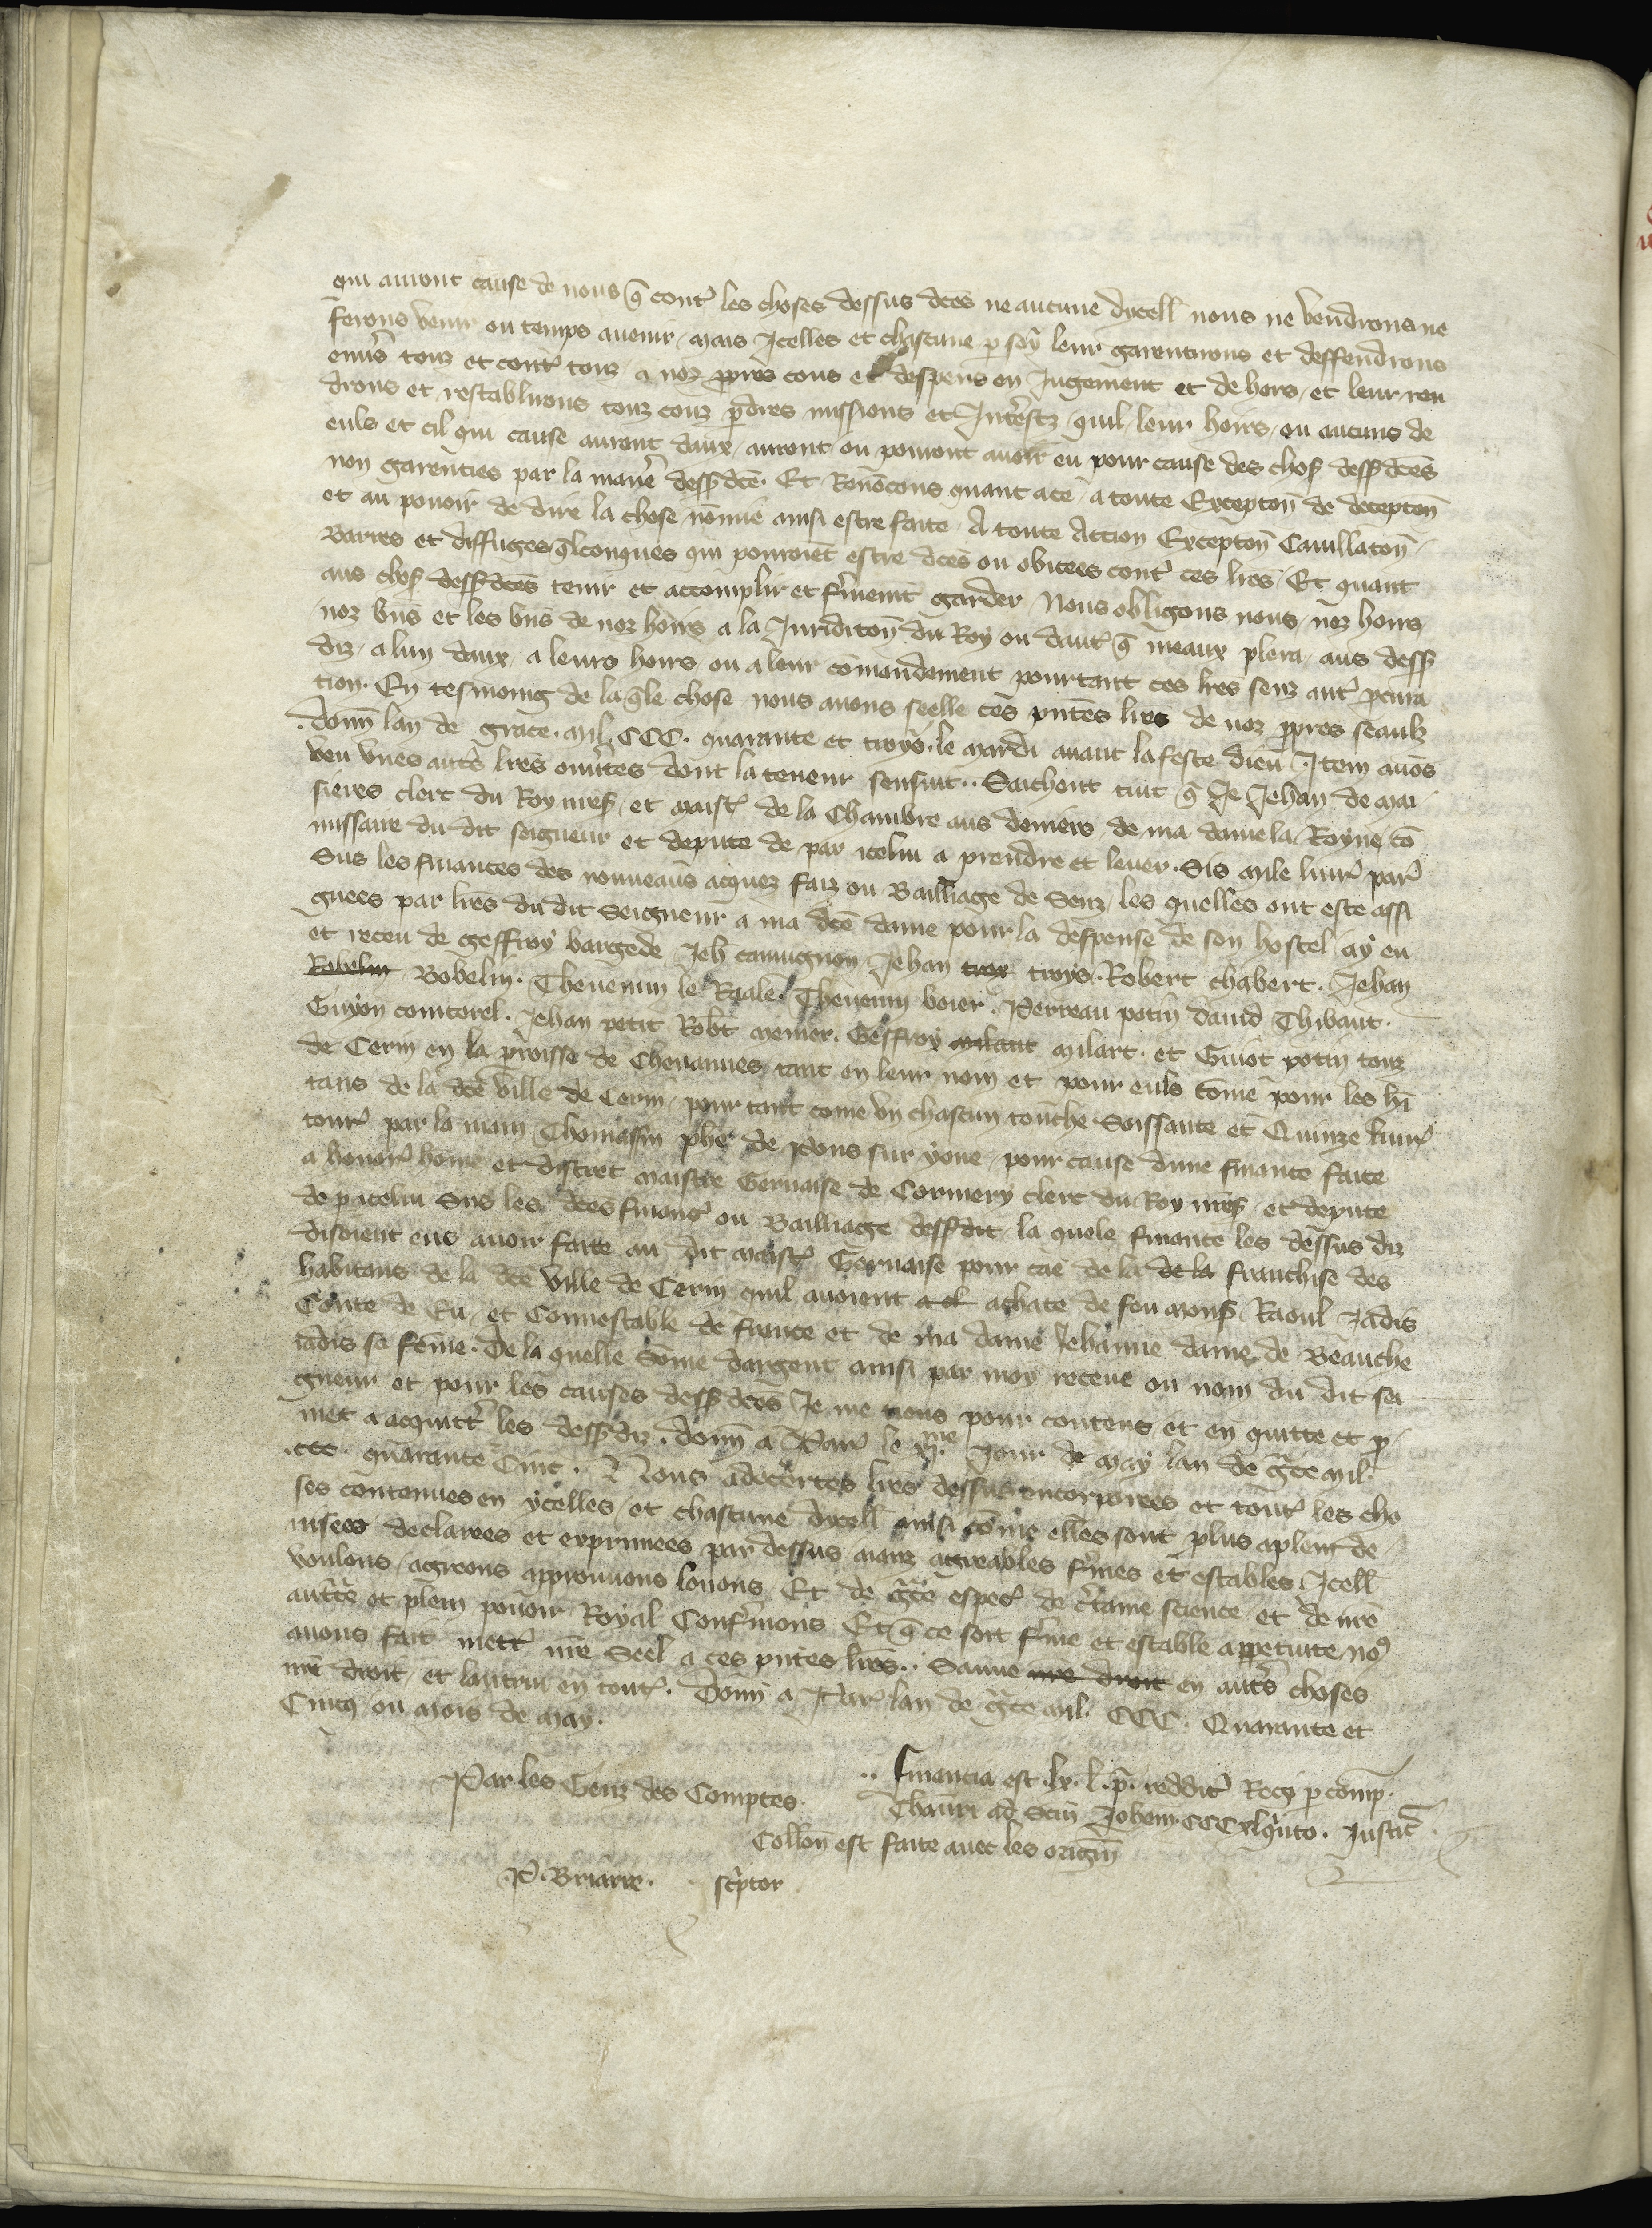 qui auront cause de nous q̄ contˀ les choses dessus dc̄es ne aucune dycell̄ nous ne vendrons ne
ferons venir ou temps auenir / mais Jcelles et chascune ꝑ soy leur garentirons et deffendrons
enuˀs touz et contˀ touz a noz ꝓpres cous et despens en Jugement et dehors / et leur ren
drons et restablirons touz couz ꝑdies missions et Jntˀestz / quil leur hoirs / ou aucuns de
euls et cil qui cause auront daux / auront ou pourront auoir eu pour cause des choſ desſ dc̄es
non garenties par la manˀe desſ dc̄e. Et Renōcons quant ace / a toute Exceptoñ de deceptoñ
et au pouoir de dire la chose nōmie ainsi estre faite A toute Action Exceptoñ Cauillatoñ /
Barres et diffuges q̄lconques qui pourroiēt estre dc̄es ou obicees contˀ ces lr̄es / Et quant
aus choſ desſ dc̄es tenir et accomplir et fˀmemt garder / Nous obligons nous / noz hoirs
noz bn̄s et les bn̄s de noz hoirs a la Juridictoñ du Roy ou dautˀ q̄ meaux plera / aus desſ
diz / a lun daux / a leurs hoirs ou a leur cōmandement pourtant ces lr̄es senz autˀ ꝓcura
tion. En tesmoing de la q̄le chose nous auons seelle ces pn̄tes lr̄es de noz ꝓpres seaulz
. donn̄ lan de grace. Mil CCC. quarante et troys. le mardi auant la feste dieu. Jtem auōs
veu vnes autˀs lr̄es ouuˀtes dont la teneur sensuit.. Saichent tuit q̄ Je Jehan de Mai
sieres clerc du Roy nr̄eſ / et maistˀ de la Chambre aus deniers de ma dame la Royne / cō
missaire du dit seigneur et depute de par icelui a prendre et leuer. Sis mile liurˀ parˀ
Sus les finances des nouueaus acquez faiz ou Bailliage de Senz / les quelles ont este assi
gnees par lr̄es du dit Seigneur a ma dc̄e dame pour la despense de son hostel / ay eu
et receu de geffroy bargede Jeh̄ camugnon Jehan trox troys. Robert chabert. Jehan
Robelin Bobelin. Theuenin le Raale. Theuenin boier. Perreau potin dauid Thibaut.
Guyon contorel. Jehan petit Rob̄t menier. Geffroy milant milart. et Guiot potin touz
de Cerin en la ꝓroisse de Cheuannes / tant en leur nom et pour euls cōme pour les hīb
tans de la dc̄e ville de Cerin / pour tant cōme vn chascun touche Soissante et Quinze liurˀ
tourˀ par la main Thomassin phē de Pons sur yone / pour cause dune finance faite
a honorˀ hōme et discret maistre Geruaise de Cormery clerc du Roy nr̄eſ et depute
de ꝑ icelui Sus les dc̄es financˀ ou Bailliage desſ dit / la quele finance les dessus diz
disoient eus auoir faite au dit maistˀ Geruaise pour cāe de la de la franchise des
habitans de la dc̄e ville de Cerin quil auoient a cl achate de feu monſ Raoul Jadis
Conte de Eu / et Connestable de france et de ma dame Jehanne dame de Beauche
iadis sa fēme. De la quelle Sōme dargent ainsi par moy receue ou nom du dit sei
gneur et pour les causes desſ dc̄es Je me tiens pour contens et en quitte et ꝓ
met a acquittˀ les desſ diz. donn̄ a Parˀ le xj.me Jour de May lan de gr̄ce mil
.ccc. quarante Cinc. Nous adecˀtes lr̄es dessus encorporees et toutˀ les cho
ses contenues en ycelles / et chascune dycell̄ ainsi cōme elles sont plus aplein de /
uisees declarees et exprimees par dessus aianz agreables fˀmes et estables. Jcell̄
voulons / agreons approuuons louons / Et de gr̄ce especˀ de cˀtaine science et de nr̄e
auctˀte et plein pouoir Royal Confˀmons Et q̄ ce soit fˀme et estable a ꝑpetuite noꝯ
auons fait mettˀ nr̄e Seel a ces pn̄tes lr̄es.. Sauue nr̄e droit en autˀs choses
nr̄e droit / et lautrui en toutˀ. Donn̄ a Parˀ lan de gr̄ce mil CCC. Quarante et
Cinq / ou mois de May.
Par les Genz des Comptes.
.. financia est .lx. l. p̄. reddit̄ Recꝑ ꝑ comp.
Thaur̄i ad Sc̄m Joh̄em. CCCxlqˀnto. Justicˀ
Coll̄on est faite auec les origiñ
P. Briarre. scˀptor